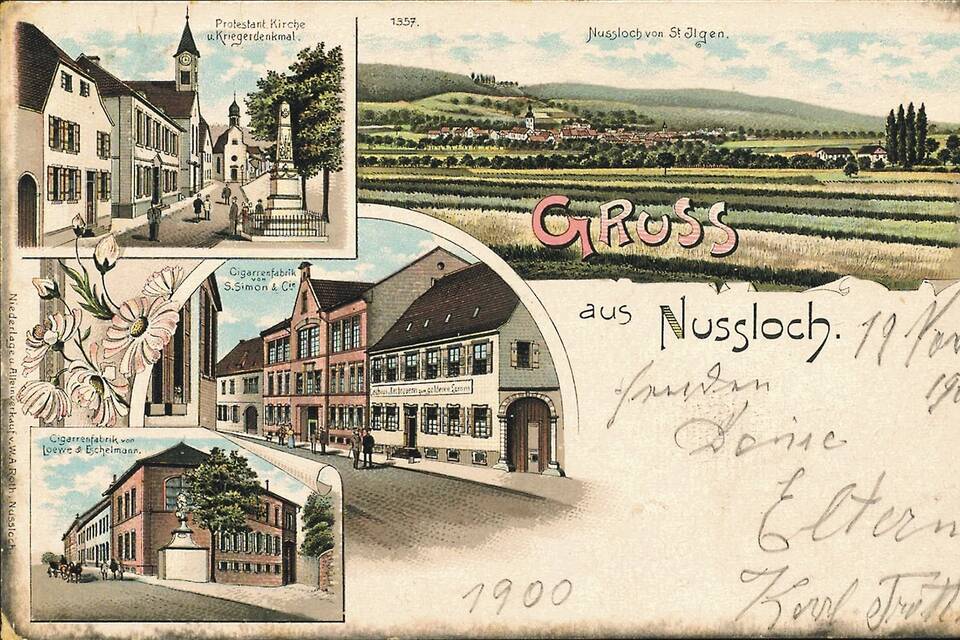 Protestant. Kirche
u. Kriegerdenkmal.
1357.
Nussloch von St Jlgen.
GRUSS
aus Nussloch.
Cigarrenfabrik
von
S. Simon & Cie
Cigarrenfabrik von
Loewe & Eschelmann.
Niederlage u. Alleinverkauf v. W. A. Roth, Nussloch.
19
senden
Deine
Eltern
Karl
1900